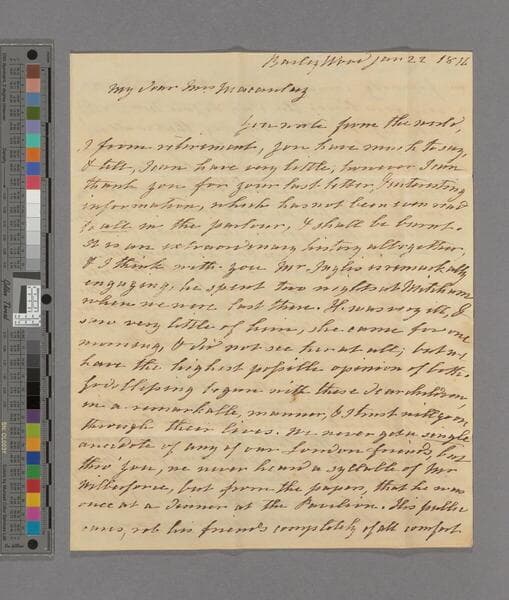 Barley Wood Jan 22 1816
My dear Mrs Macaulay
You write from the world,
I from retirement, you have much to say,
& tell, I can have very little, however I can
thank you for your last letter & interesting
information, which has not been even read
to all in the parlour, & shall be burnt.
It is an extraordinary history altogether,
& I think with you Mr Inglis is remarkably
engaging, he spent two nights at
when we were last there. He was very ill, I
saw very little of him, she came for one
morning, & did not see her at all; but we
have the highest possible opinion of both.
God's blessing began with these dear children
in a remarkable manner, & I trust will go on
through their lives. We never get a single
anecdote of any of our London friends, but
thro' you, we never heard a syllable of Mr
Wilberforce, but from the papers, that he was
once at a dinner at the Pavilion. His public
cares, rob his friends completely of all comfort